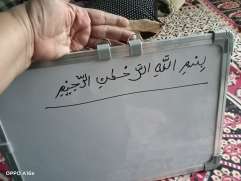 بِسْمِ اللّٰهِ الرَّحْمٰنِ الرَّحِيْمِ
OPPO A16e